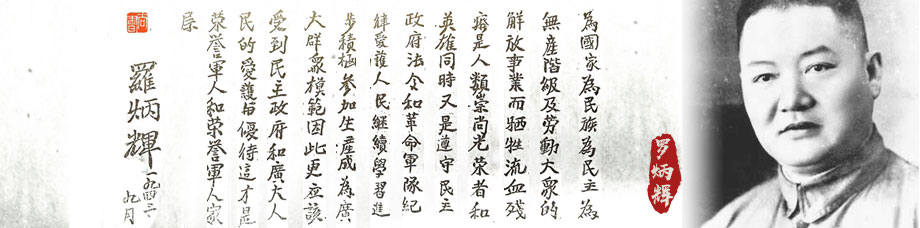 為國家為民族為民主為
無產階級及勞動大衆的
解放事業而牺牲流血殘
廢是人類崇尚光荣者和
英雄同時又是遵守民主
政府法令和革命軍隊紀
律愛護人民継續學習進
步積極参加生產成為廣
大群衆模範因此更应該
受到民主政府和廣大人
民的爱護與優待這才是
荣誉軍人和荣誉軍人家
属
羅炳輝
一九四三
九月
罗炳辉